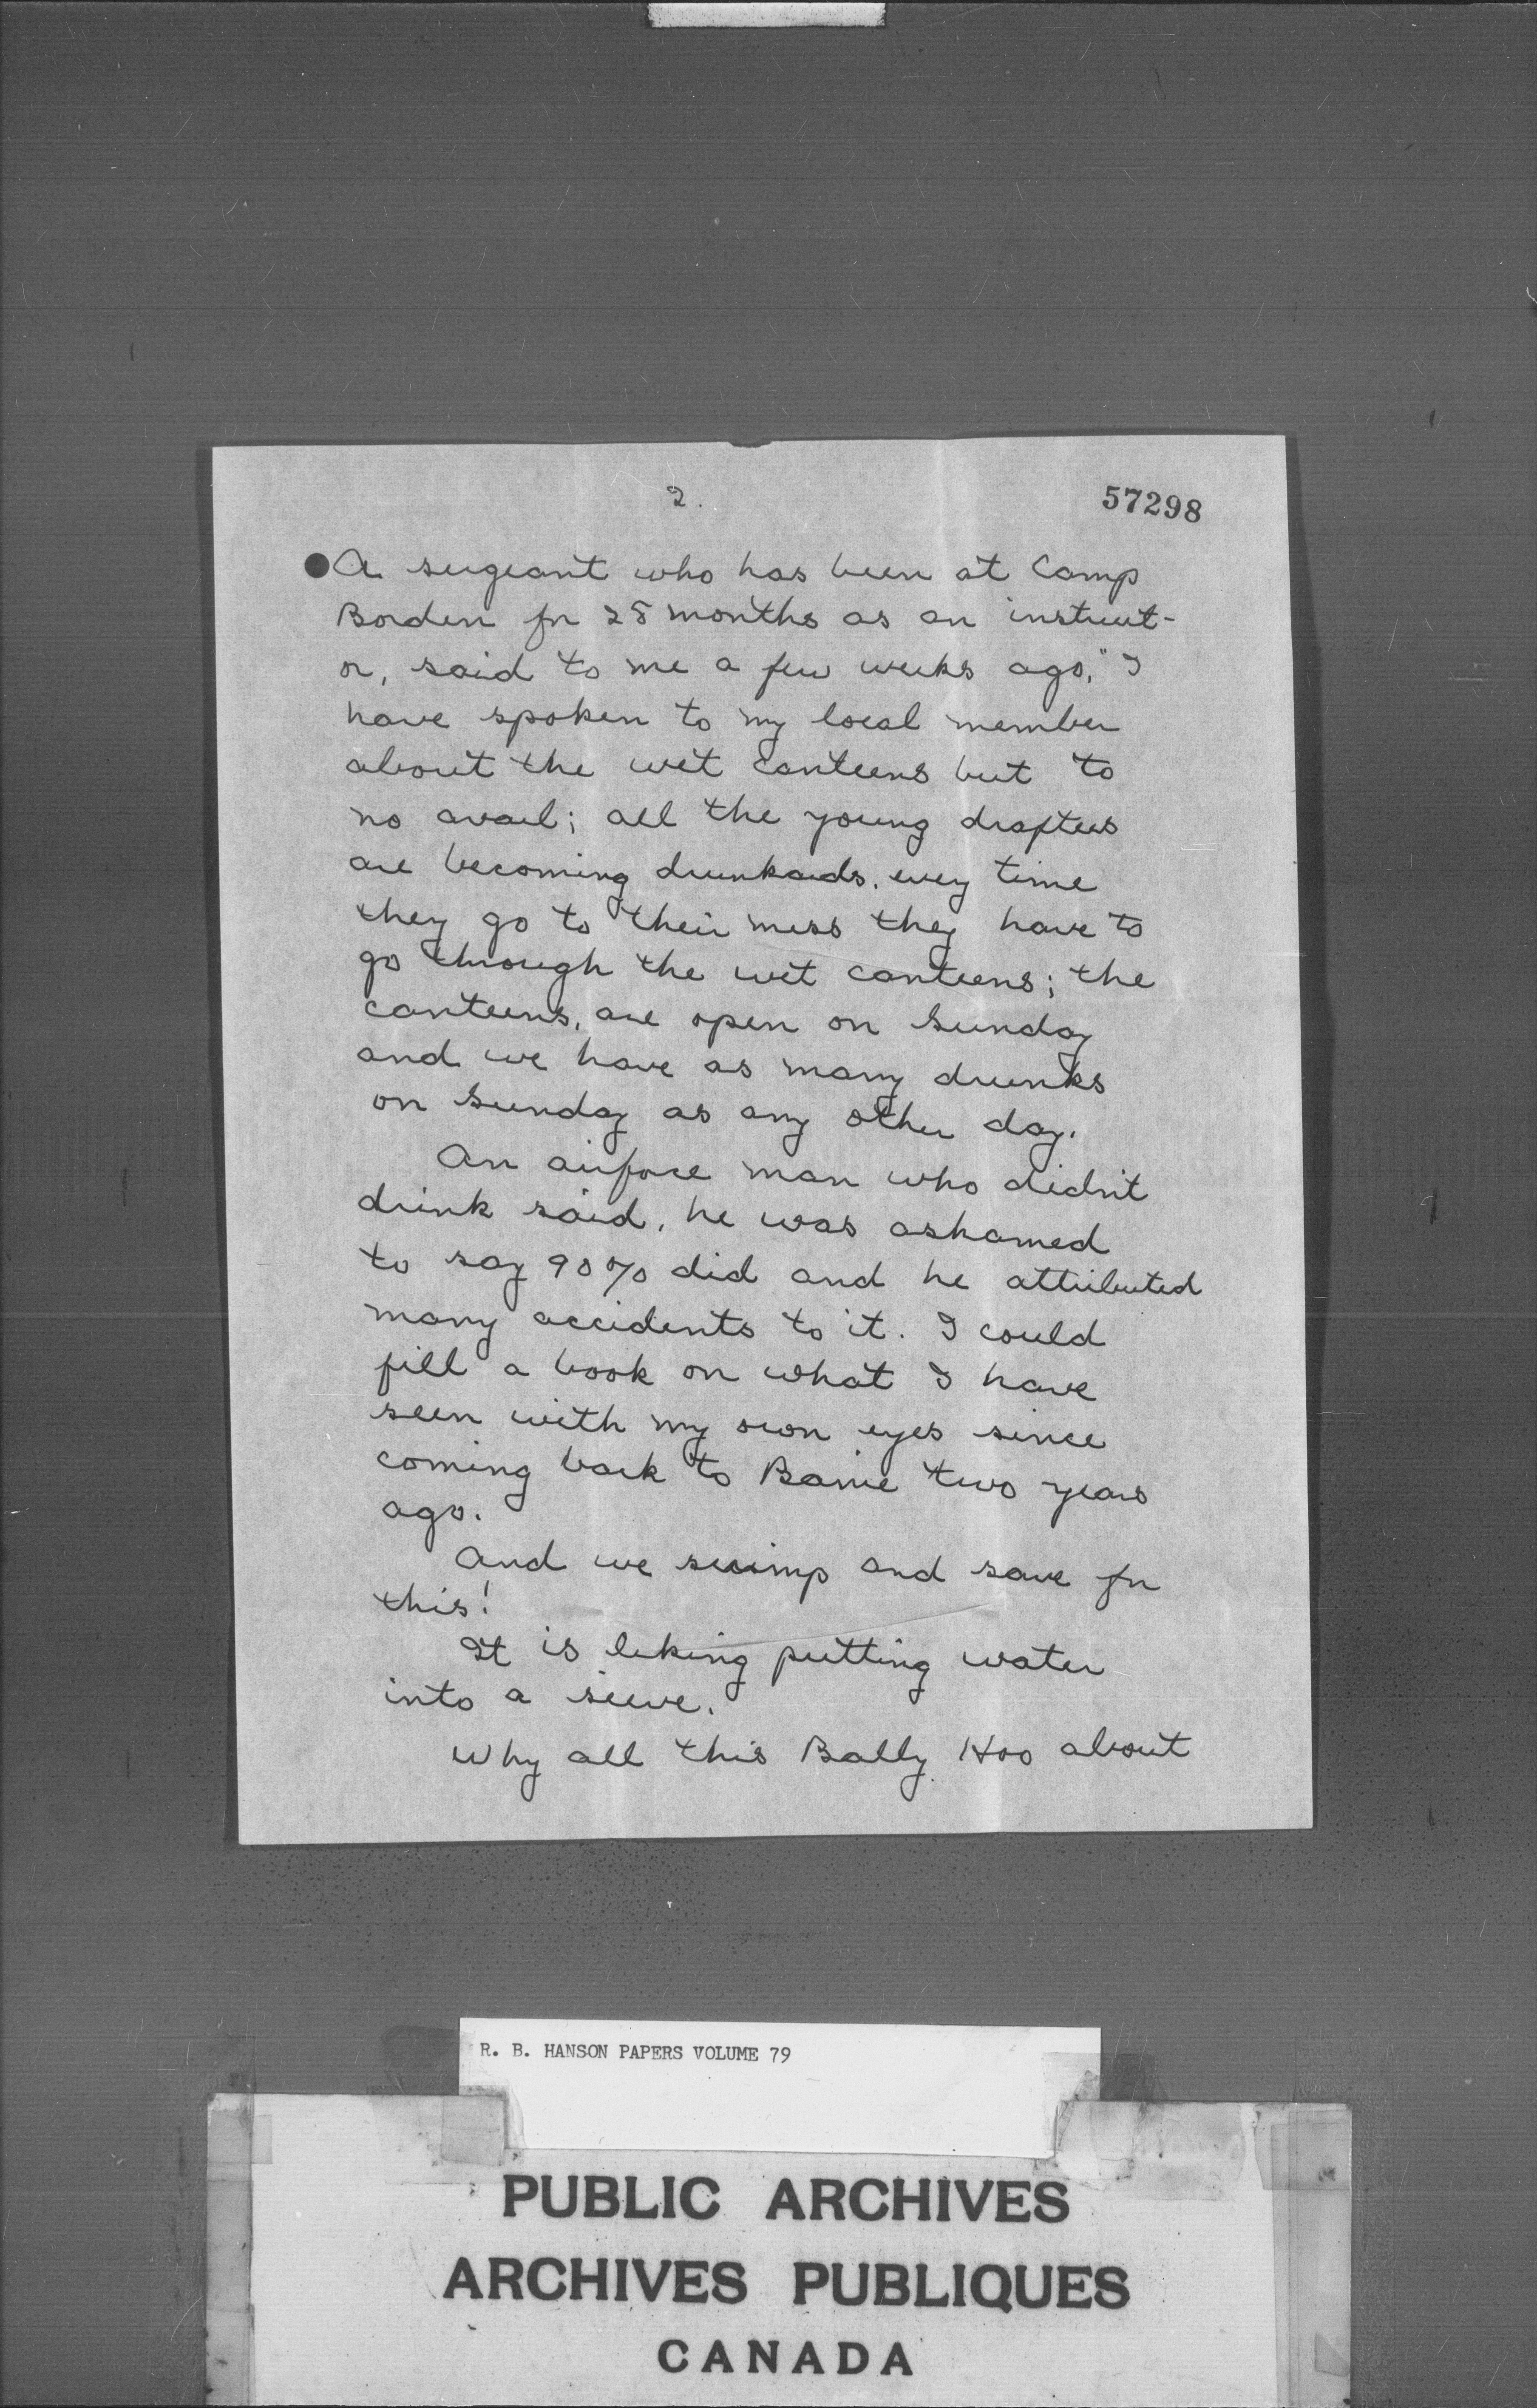 2.
57298
A sergeant who has been at Camp
Borden for 28 months as an instruct-
or, said to me a few weeks ago, "I
have spoken to my local member
about the wet canteens but to
no avail; all the young draftees
are becoming drunkards, every time
they go to their mess they have to
go through the wet canteens; the
canteens, are open on Sunday
and we have as many drunks
on Sunday as any other day.
An airforce man who didn't
drink said, he was ashamed
to say 90% did and he attributed
many accidents to it. I could
fill a book on what I have
seen with my own eyes since
coming back to Barrie two years
ago.
And we scrimp and save for
this!
It is liking putting water
into a sieve.
Why all this Bally Hoo about
R. B. HANSON PAPERS VOLUME 79
PUBLIC ARCHIVES
ARCHIVES PUBLIQUES
CANADA